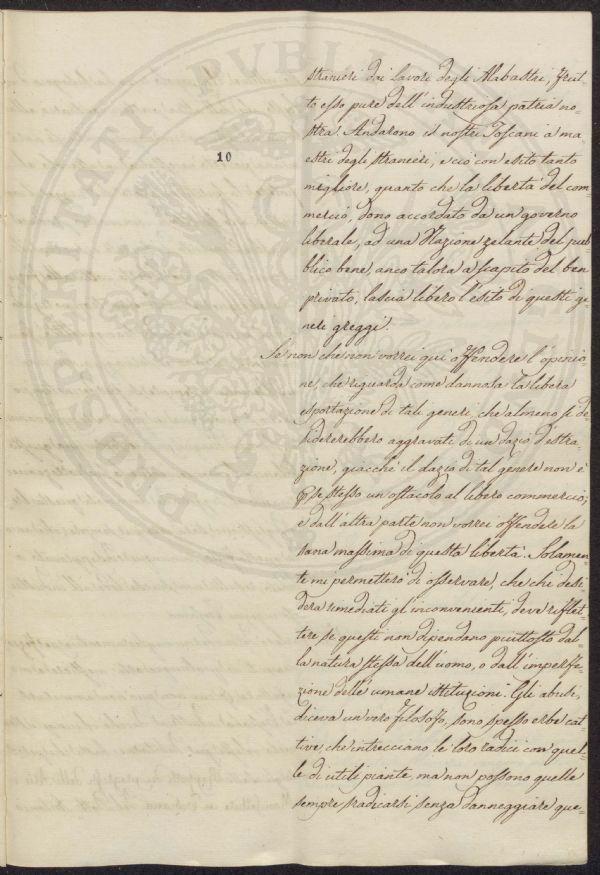 10
stranieri dai lavori degli Alabastri, frut-
to esso pure dell'industriosa patria no-
stra. Andarono i nostri Toscani a ma-
estri degli stranieri, e ciò con esito tanto
migliore, quanto che la libertà del com-
mercio, dono accordato da un governo
liberale, ad una Nazione zelante del pub-
blico bene, anco talora a scapito del ben
privato, lascia libero l'esito di questi ge-
neri greggi.
Se non che non vorrei qui offendere l'opinio-
ne, che riguarda come dannosa la libera
esportazione di tali generi, che almeno si de-
sidererebbero aggravati di un dazio d'estra-
zione, giacchè il dazio di tal genere non è
se stesso un ostacolo al libero commercio;
e dall'altra parte non vorrei offendere la
sana massima di questa libertà. Solamen-
te mi permetterò di osservare, che chi desi-
dera rimediati gl'inconvenienti, deve riflet-
tere se questi non dipendano piuttosto dal-
la natura stessa dell'uomo, o dall'imperfe-
zione delle umane istituzioni. Gli abusi,
diceva un vero filosofo, sono spesso erbe cat-
tive, che intrecciano le loro radici con quel-
le di utili piante, ma non possono quelle
sempre sradicarsi, senza danneggiare que-